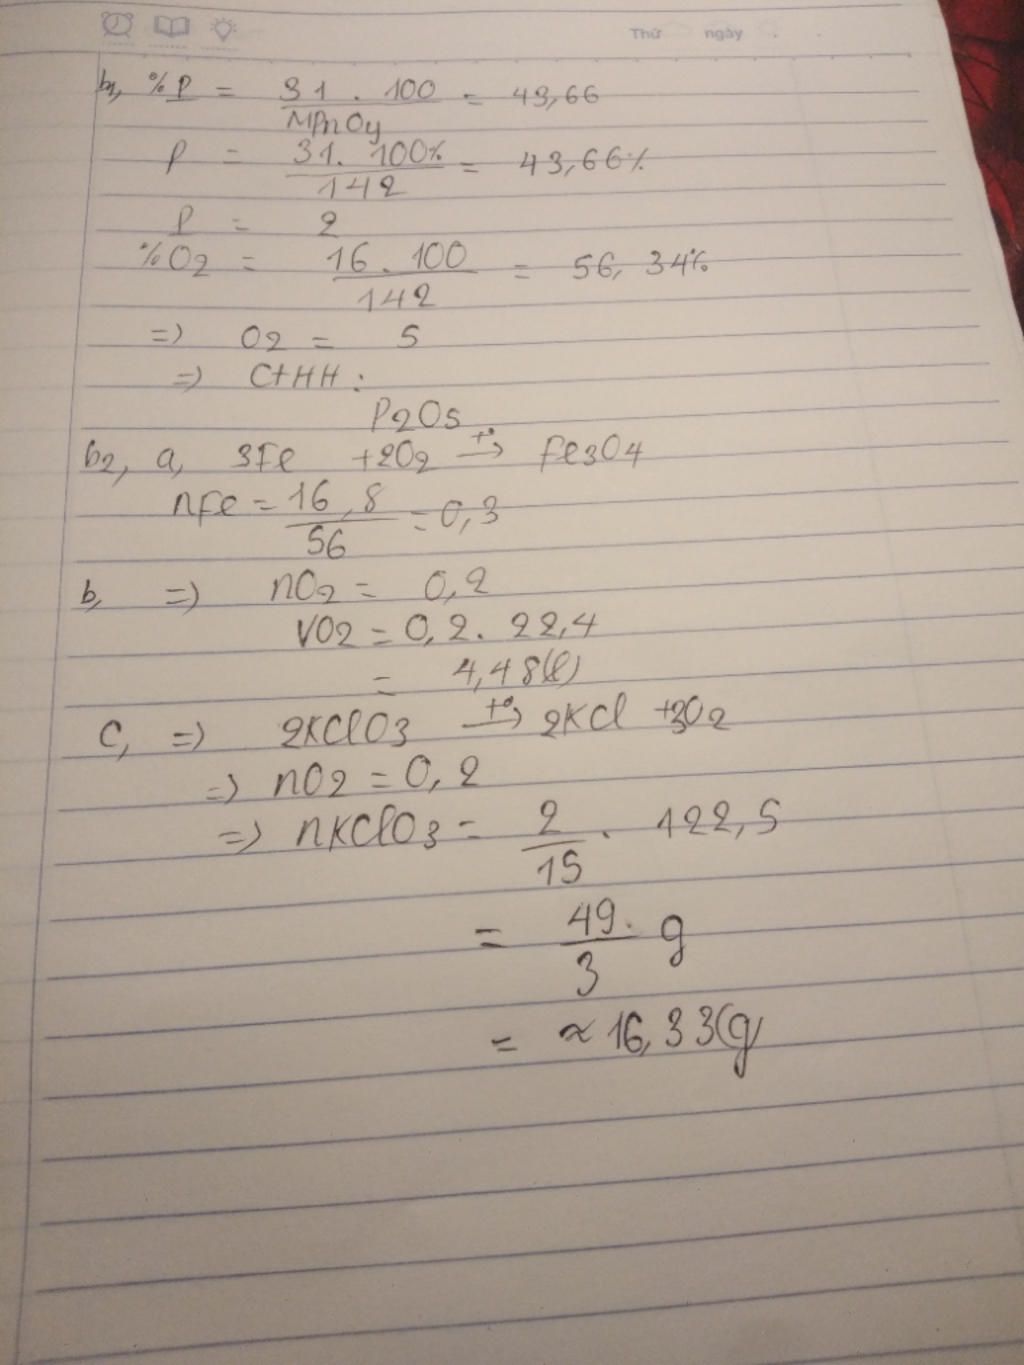 Thứ ngày
b1, %P = 31 . 100 / MPnOy = 43,66
P = 31. 100% / 142 = 43,66%
P = 2
%O2 = 16 . 100 / 142 = 56, 34%
=) O2 = 5
=) CTHH :
P2O5
b2, a, 3Fe +2O2 t° → Fe3O4
nFe = 16,8 / 56 = 0,3
b, =) nO2 = 0,2
VO2 = 0,2. 22,4
= 4,48(l)
C, =) 2KClO3 t° → 2KCl +3O2
=) nO2 = 0,2
=) nKClO3 = 2 / 15 . 122,5
= 49 / 3 g
= ≈ 16,33(g